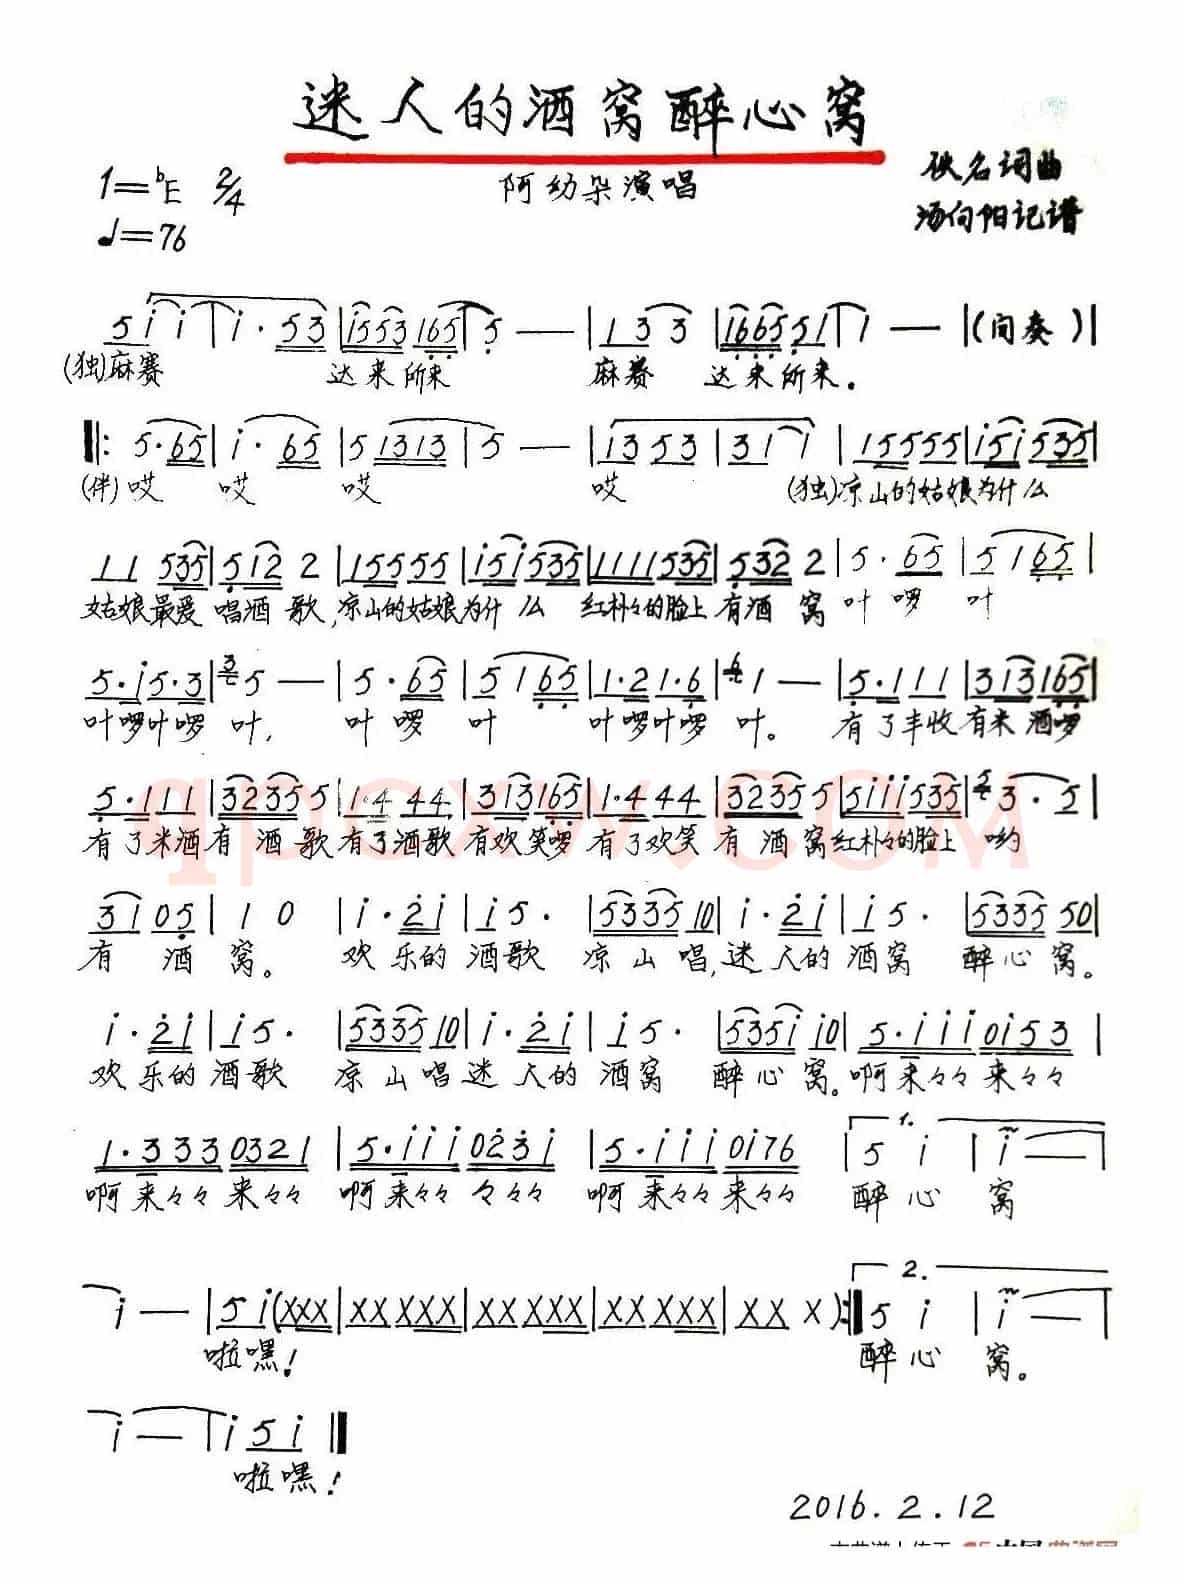 迷人的酒窝醉心窝
1=♭E 2/4
阿幼朵演唱
佚名词曲
♩=76
汤向阳记谱
5 i i | i· 5 3 | i 5 5 3 1 6 5 | 5 — | 1 3 3 | 1 6 6 5 5 1 | 1 — | (间奏) |
(独)麻赛 达来所来 麻赛 达来所来.
‖: 5·6 5 | i·6 5 | 5 1 3 1 3 | 5 — | i 3 5 3 | 3 1 i | 1 5 5 5 5 | i 5 i 5 3 5 |
(伴)哎 哎 哎 哎 (独)凉山的姑娘为什么
1 1 5 3 5 | 5 1 2 2 | 1 5 5 5 5 | i 5 i 5 3 5 | 1 1 1 1 5 3 5 | 5 3 2 2 | 5·6 5 | 5 1 6 5 |
姑娘最爱唱酒歌,凉山的姑娘为什么 红朴々的脸上有酒窝 叶啰 叶
5·i 5·3 | 5 — | 5·6 5 | 5 1 6 5 | 1·2 1·6 | 1 — | 5·1 1 1 | 3 1 3 1 6 5 |
叶啰叶啰 叶, 叶啰 叶 叶啰叶啰 叶。 有了丰收有米酒啰
5·1 1 1 | 3 2 3 5 5 | 1·4 4 4 | 3 1 3 1 6 5 | 1·4 4 4 | 3 2 3 5 5 | 5 i i i 5 3 5 | 3·5 |
有了米酒有酒歌有了酒歌有欢笑啰有了欢笑有酒窝红朴々的脸上 哟
3 1 0 5 | 1 0 | i·2 i | i 5· | 5 3 3 5 1 0 | i·2 i | i 5· | 5 3 3 5 5 0 |
有酒窝。 欢乐的酒歌 凉山唱,迷人的酒窝 醉心窝。
i·2 i | i 5· | 5 3 3 5 1 0 | i·2 i | i 5· | 5 3 5 i i 0 | 5·i i i 0 i 5 3 |
欢乐的酒歌 凉山唱迷人的酒窝 醉心窝。啊来々々来々々
1·3 3 3 0 3 2 1 | 5·i i i 0 2 3 i | 5·i i i 0 i 7 6 | 1. 5 i | i — |
啊来々々来々々 啊来々々々々々 啊来々々来々々 醉心窝
i — | 5 i (X X X | X X X X X | X X X X X | X X X X X | X X X) :‖ 2. 5 i | i — |
啦嘿! 醉心窝。
i — | i 5 i ‖
啦嘿!
2016.2.12
qpcxw.COM